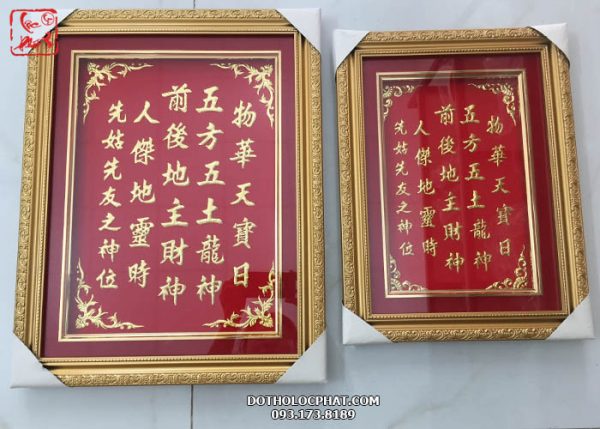 物華天寶日
五方五土龍神
前後地主財神
人傑地靈時
先姑先友之神位
物華天寶日
五方五土龍神
前後地主財神
人傑地靈時
先姑先友之神位
DOTHOLOCPHAT.COM
093.173.8189